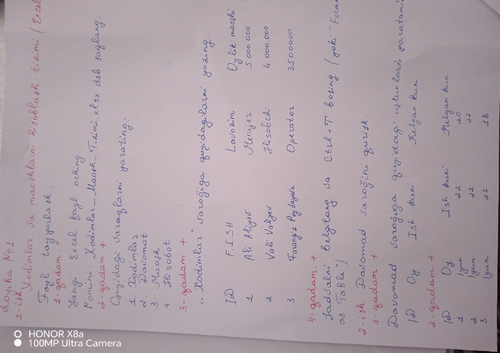 Loyiha №1
1-ish Xodimlar va maoshlarni hisoblash tizimi (Excel
Fayl tayyorlash:
1-qadam +
Yangi Excel fayl oching
Nomini Xodimlar_Maosh_Tizimi.xlsx deb saqlang.
2-qadam +
Quyidagi varaqlarni yarating:
1 Xodimlar
2 Davomat
3 Maosh
4 Hisobot
3-qadam +
"Xodimlar" varog'iga quyidagilarni yozing.
ID F.I.SH Lavozim Oylik maoshi
1 Ali Aliyev Menejer 5 000.000
2 Vali Valiyev Hisobchi 4.000.000
3 Operator 3500000
4-qadam +
Jadvalni belgilang va Ctrl+T bosing (yoki "Format
as Table")
2-ish Davomad varog'ini qurish.
1-qadam +
Davomad varog'iga quyidagi ustunlarni yaratami
ID Oy Ish kuni Kelgan kun
2-qadam +
ID Oy Ish kuni Kelgan kun
1 Iyun 22 20
2 Iyun 22 22
3 Iyun 22 18
HONOR X8a
100MP Ultra Camera